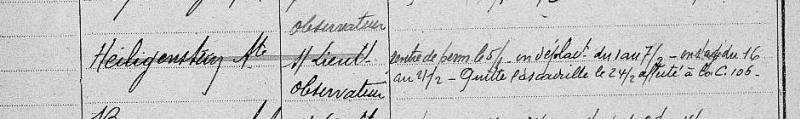 observateur
Heiligenstein Mte S/Lieut rentre de perm le 5/1 - en déplact du 1 au 7/2 - du 16
observateur au 21/2 - Quitte l'escadrille le 24/2 affecté à la C. 105 -